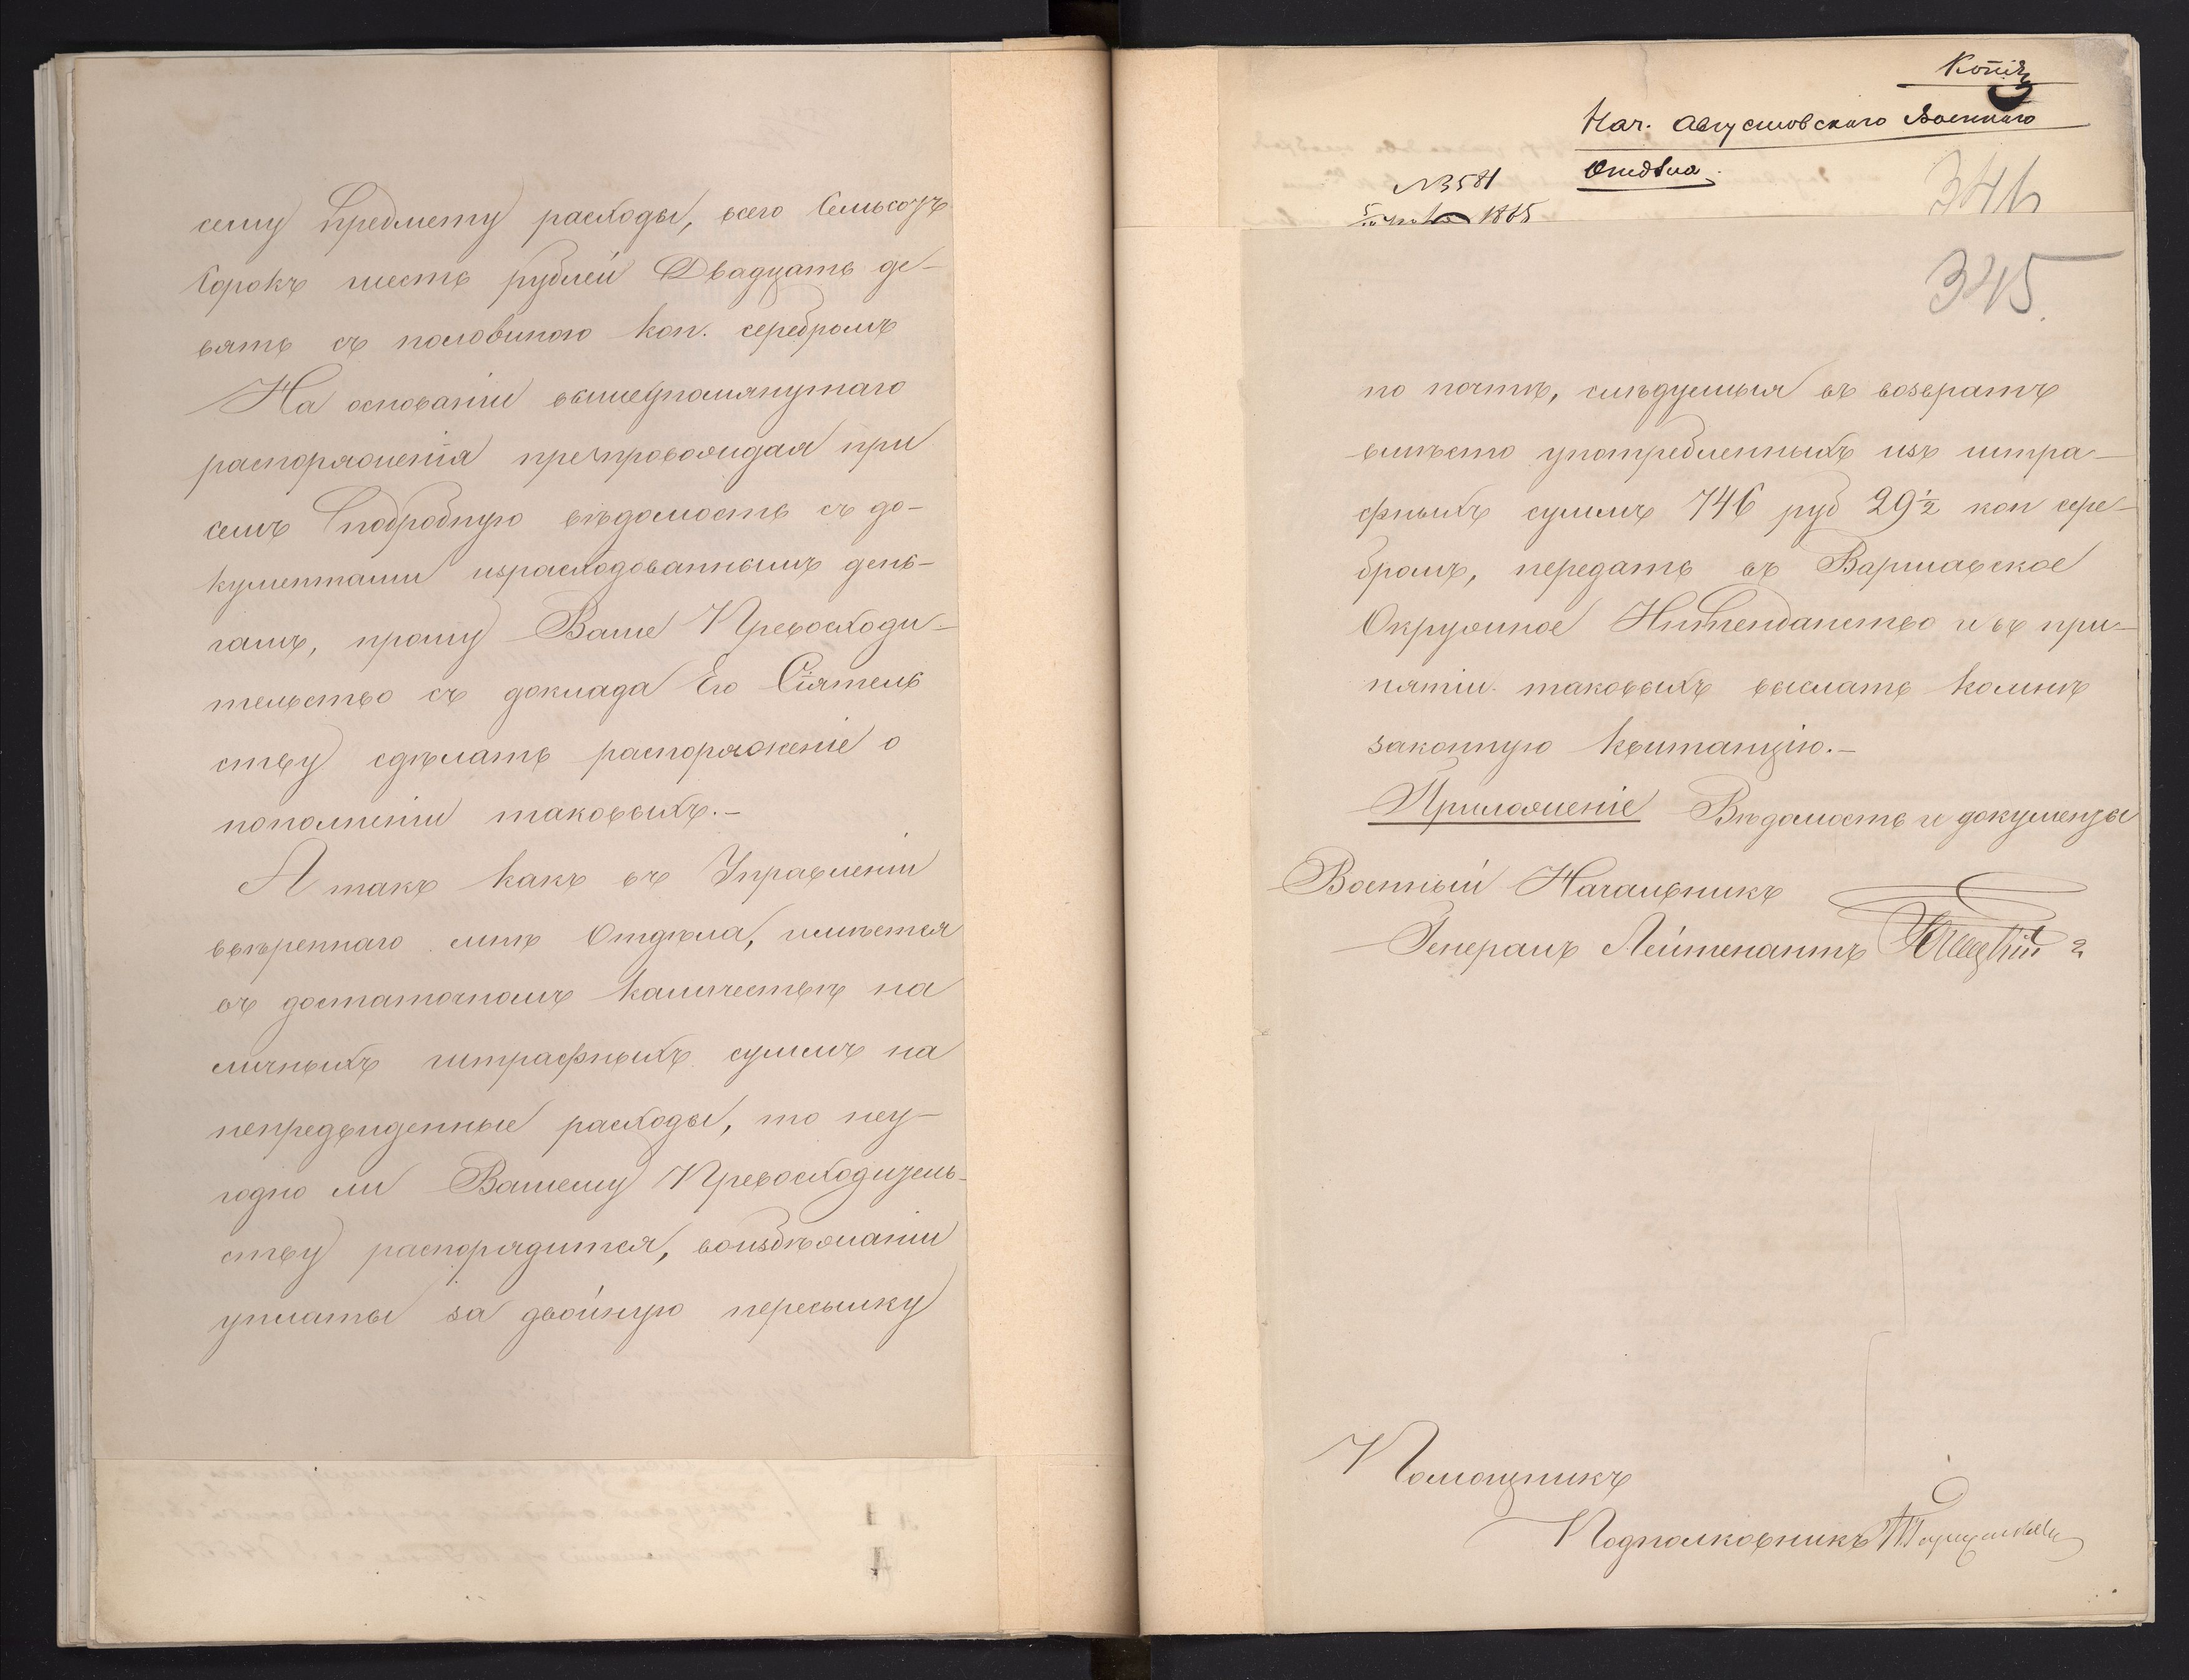 сему предмету расходы, всего Семьсотъ
Сорокъ шесть рублей Двадцать де-
вять съ половиною коп. серебромъ
На основаніи вышеупомянутаго
распоряженія препровождая при
семъ подробную вѣдомость съ до-
кументами израсходованнымъ день-
гамъ, прошу Ваше Превосходи-
тельство съ доклада Его Сіятель
ству сдѣлать распоряженіе о
пополненіи таковыхъ.-
А такъ какъ въ Управленіи
ввѣреннаго мнѣ Отдѣла, имѣется
въ достаточномъ каличествѣ на
личныхъ штрафныхъ суммъ на
непредвиденные расходы, то неу-
годно ли Вашему Превосходитель-
ству распорядится, воизбѣжаніи
уплаты за двойную пересылку
Копія
Нач. Августовскаго Военнаго
Отдѣла.
№ 581
1865
346
345.
по почтѣ, слѣдуемыя въ возвратъ
вмѣсто употребленныхъ изъ штра-
фныхъ суммъ 746 руб 29½ коп сере-
бромъ, передать въ Варшавское
Окружное Интендантство и въ при-
нятіи таковыхъ выслать комнѣ
законную квитанцію.-
Приложеніе Вѣдомость и документы
Военный Начальникъ
Генералъ Лейтенантъ
Помощникъ
Подполковникъ